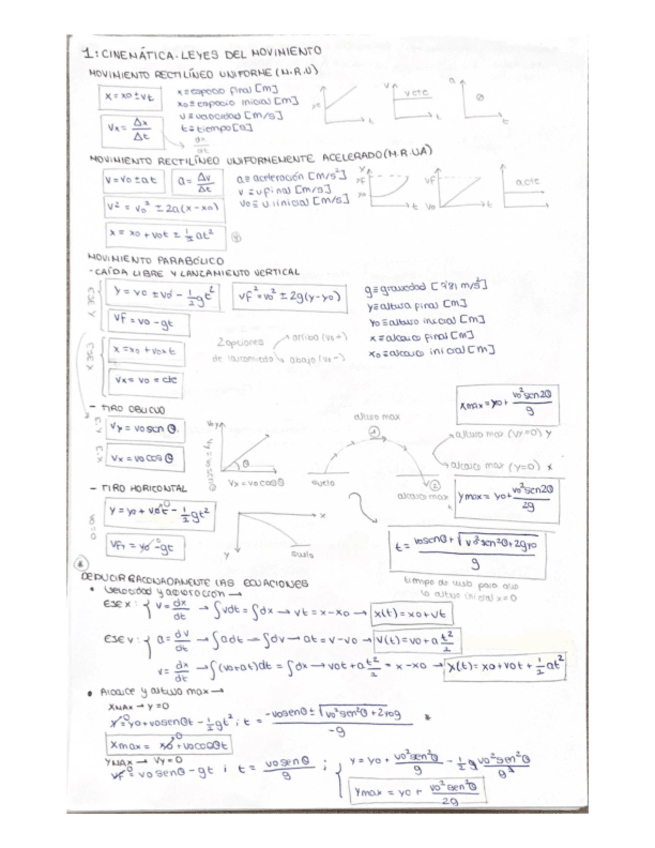 1: CINEMÁTICA - LEYES DEL MOVIMIENTO
MOVIMIENTO RECTILÍNEO UNIFORME (M.R.U)
x = xo ± vt
x ≡ espacio final [m]
xo ≡ espacio inicial [m]
v ≡ velocidad [m/s]
t ≡ tiempo [s]
Vx = Δx/Δt
dx/dt
v cte
MOVIMIENTO RECTILÍNEO UNIFORMEMENTE ACELERADO (M.R.UA)
v = vo ± at
a = Δv/Δt
a ≡ aceleración [m/s²]
v ≡ v final [m/s]
vo ≡ v inicial [m/s]
v² = vo² ± 2a(x - xo)
x = xo + vot ± 1/2 at²
a cte
MOVIMIENTO PARABÓLICO
- CAÍDA LIBRE Y LANZAMIENTO VERTICAL
EJE Y
y = yo ± vo - 1/2 gt²
vf² = vo² ± 2g(y-yo)
vf = vo - gt
g ≡ gravedad [9'81 m/s²]
y ≡ altura final [m]
yo ≡ altura inicial [m]
x ≡ alcance final [m]
xo ≡ alcance inicial [m]
EJE X
x = xo + voxt
Vx = vo = cte
2 opciones de lanzamiento
arriba (vo+)
abajo (vo-)
- TIRO OBLICUO
Vy = vo sen θ
Vx = vo cos θ
Vy = vo sen θ
Vx = vo cos θ
altura max
suelo
alcance max
xmax = yo + vo² sen2θ/g
altura max (Vy=0) y
alcance max (y=0) x
ymax = yo + vo² sen2θ/2g
- TIRO HORIZONTAL
y = yo + vot - 1/2 gt²
VFy = vo - gt
suelo
t = vosenθ + √vo²sen²θ + 2gyo / g
DEDUCIR RAZONADAMENTE LAS ECUACIONES
• Velocidad y aceleración →
EJE x: { v = dx/dt → ∫vdt = ∫dx → vt = x - xo → x(t) = xo + vt
EJE v: { a = dv/dt → ∫adt → ∫dv → at = v - vo → v(t) = vo + a t²/2
v = dx/dt → ∫(vo + at)dt = ∫dx → vot + a t²/2 = x - xo → x(t) = xo + vot + 1/2 at²
• Alcance y altura max →
XMAX → y = 0
y = yo + vosenθt - 1/2 gt² ; t = -vosenθ ± √vo²sen²θ + 2yog / -g
xmax = xo + vocosθt
YMAX → Vy = 0
vf = vo senθ - gt ; t = vo senθ/g ; { y = yo + vo²sen²θ/g - 1/2 g vo²sen²θ/g²
ymax = yo + vo² sen²θ/2g